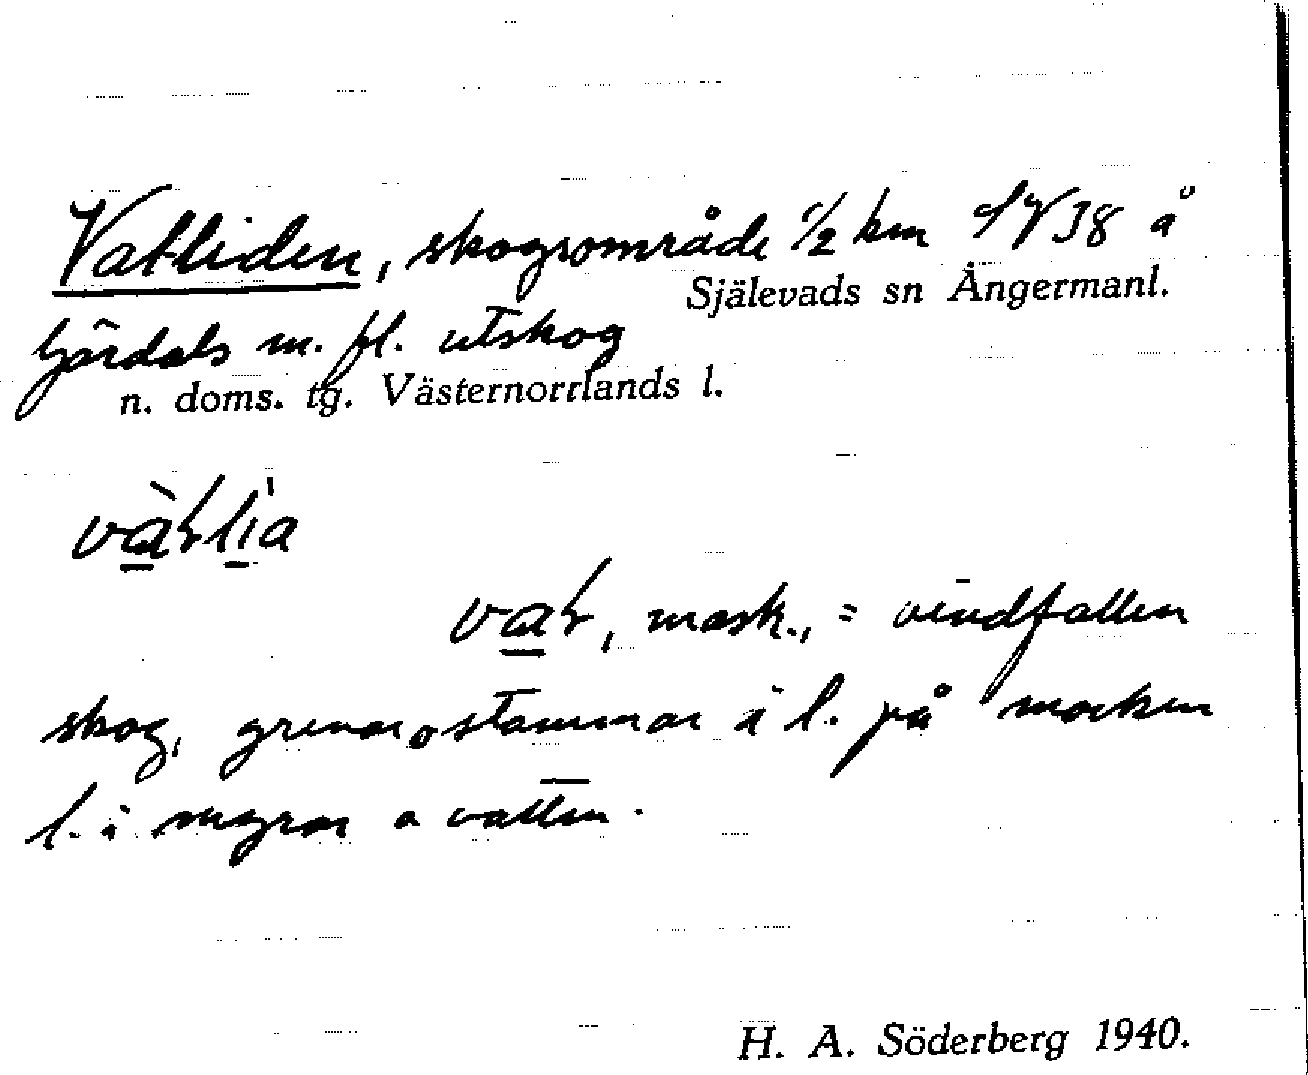 Vatliden, skogsområde 1/2 km SV 38 å
Själevads sn Ångermanl.
Gärdals m. fl. utskog
n. doms. tg. Västernorrlands l.
mask., = vindfallen
skog, grenar o stammar i l. på marken
l. i myrar o vatten.
H. A. Söderberg 1940.